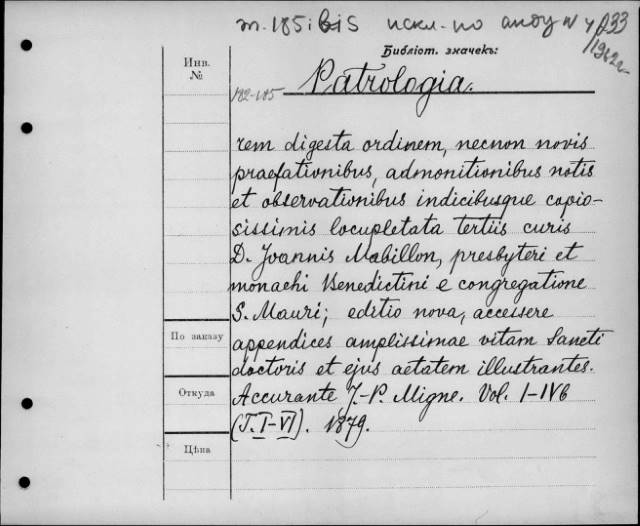 т. 185; bis искл. по акту N 4/233
/1962г
Библіот. значекъ:
Инв.
№
182-185
Patrologia.
rem digesta ordinem, necnon novis
praefationibus, admonitionibus notis
et observationibus indicibusque copio-
sissimis locupletata tertiis curis
D. Joannis Mabillon, presbyteri et
monachi Benedictini e congregatione
S. Mauri; editio nova, accessere
По заказу
appendices amplissimae vitam Sancti
doctoris et ejus aetatem illustrantes.
Откуда
Accurante J.-P. Migne. Vol. I-IVb
(T. I-VI). 1879.
Цѣна